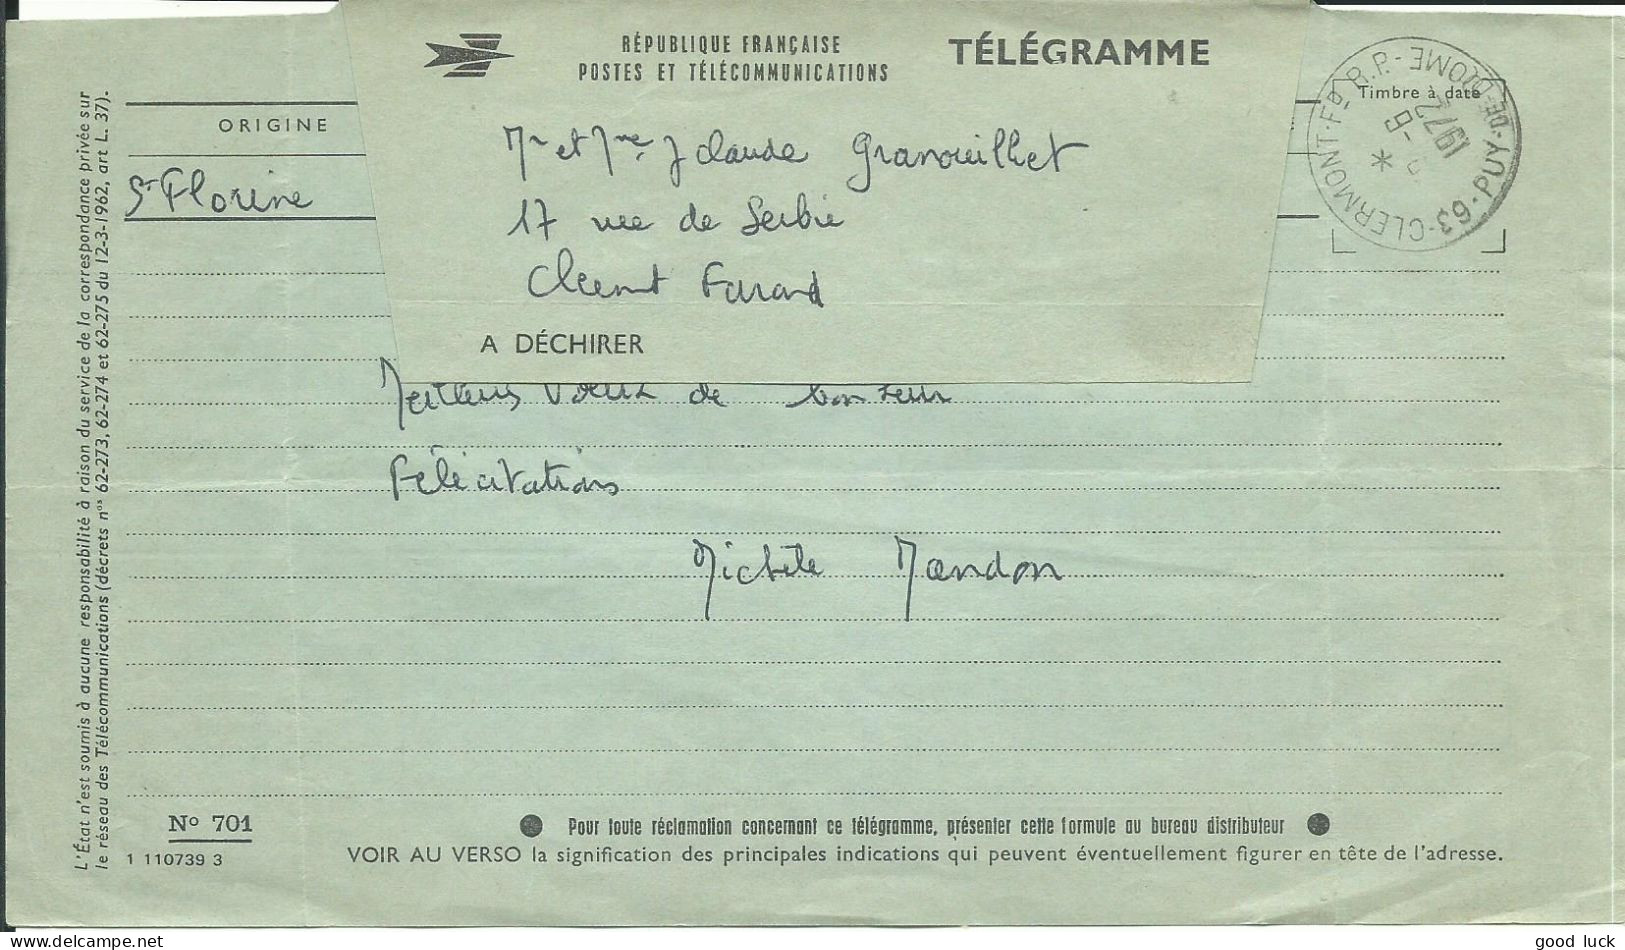 RÉPUBLIQUE FRANÇAISE
POSTES ET TÉLÉCOMMUNICATIONS
TÉLÉGRAMME
Timbre à date
63-CLERMONT-FD R.P.-PUY-DE-DOME
-9
1972
*
ORIGINE
St Florine
Mr et Mme J Claude Granouillet
17 rue de Serbie
Clermont Ferrand
A DÉCHIRER
Meilleurs voeux de bonheur
Félicitations
Michèle Mandon
L'État n'est soumis à aucune responsabilité à raison du service de la correspondance privée sur
le réseau des Télécommunications (décrets nos 62-273, 62-274 et 62-275 du 12-3-1962, art L. 37).
No 701
1 110739 3
Pour toute réclamation concernant ce télégramme, présenter cette formule au bureau distributeur
VOIR AU VERSO la signification des principales indications qui peuvent éventuellement figurer en tête de l'adresse.
delcampe.net
good luck